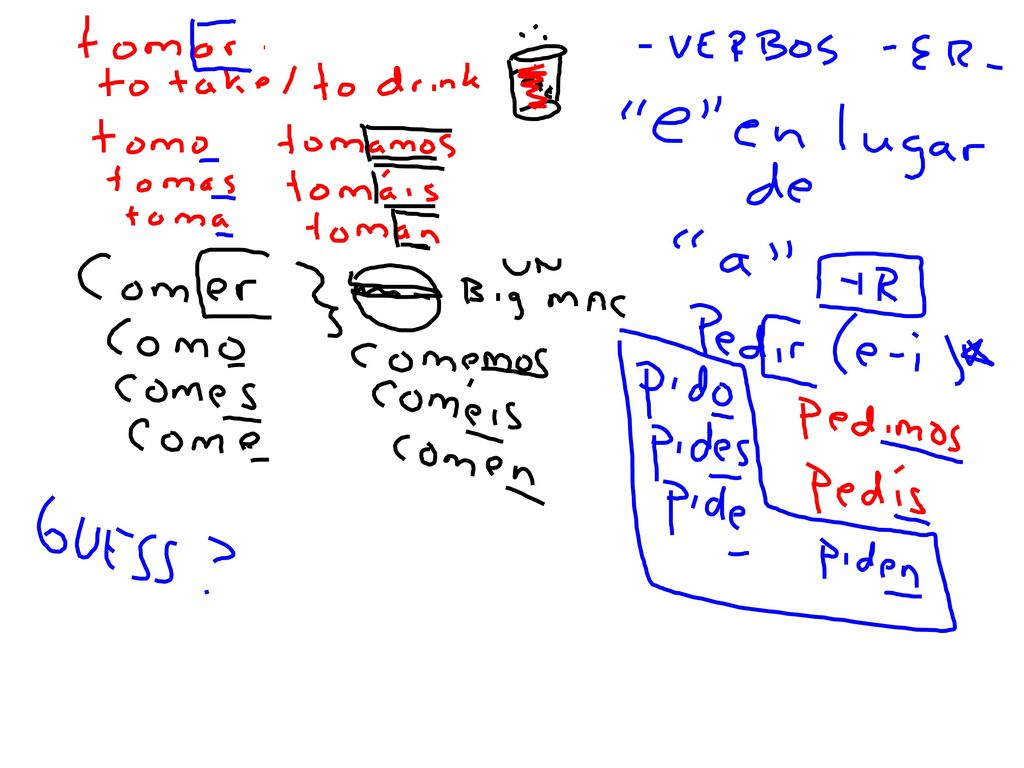 tomar.
to take / to drink
tomo tomamos
tomas tomáis
toma toman
Comer
UN
Big mac
Como Comemos
Comes Coméis
Come Comen
GUESS?
- VERBOS -ER_
"e" en lugar
de
"a"
-IR
Pedir (e-i)*
Pido Pedimos
Pides Pedís
Pide Piden